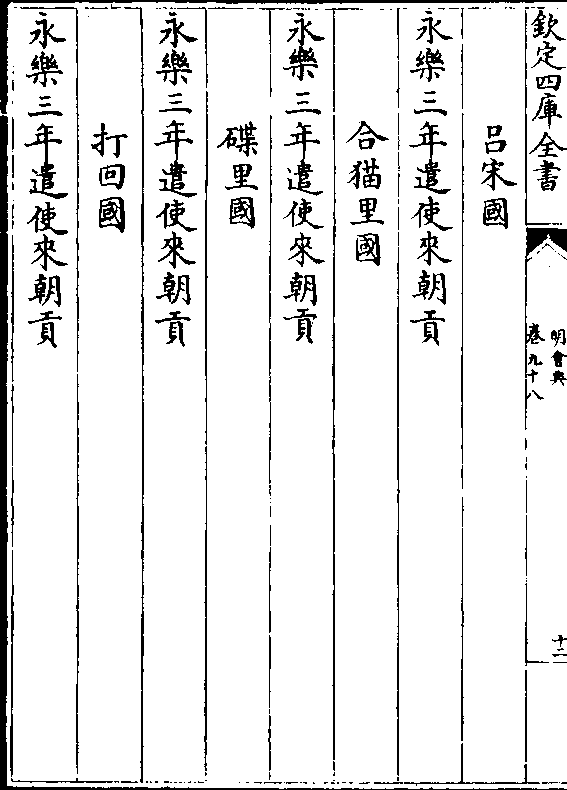 欽定四庫全書
明會典
卷九十八
十二
呂宋國
永樂三年遣使來朝貢
合猫里國
永樂三年遣使來朝貢
碟里國
永樂三年遣使來朝貢
打回國
永樂三年遣使來朝貢